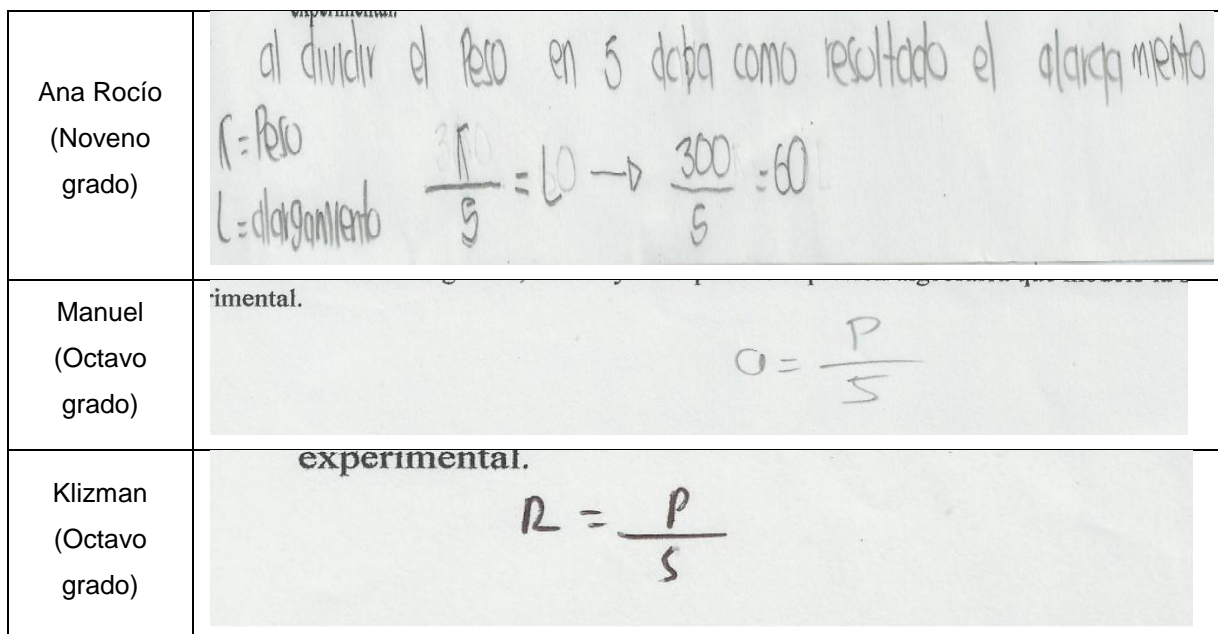 Ana Rocío
(Noveno
grado)
experimental.
al dividir el Peso en 5 daba como resultado el alargamiento
K = Peso
L = alargamiento
K/5 = L → 300/5 = 60
Manuel
(Octavo
grado)
rimental.
a = P/5
Klizman
(Octavo
grado)
experimental.
R = P/5